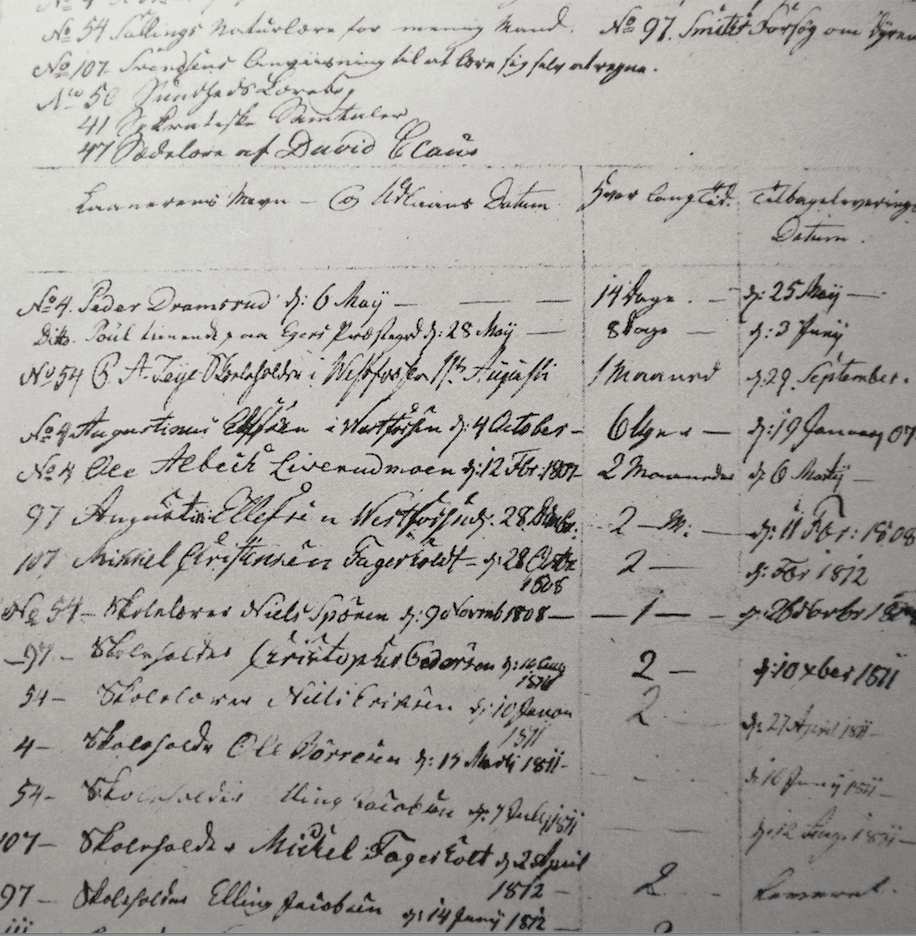 No 54 Sallings Naturlære for menig Mand. No 97. Smiths Forsøg om Dyrenes
No 107 Svendsens Anviisning til at lære sig selv at regne.
No 50 Sundheds Lærebog
41 Sokratiske Samtaler
47 Sædelære af David Claus
Laanerens Navn – Og Udlaans Datum. Hvor lang Tid. Tilbageleverings
Datum.
No 4. Peder Dramsrud d: 6 May — 14 Dage. — d: 25 May —
Dito. Poul tienende paa Egers Præstegrd d: 28 May — 8 Dage d: 3 Juny
No 54 A. Teje Skoleholder i Westfossen Augusti 1 Maaned d 29 September.
No 4 Augustinus Ellefsen i Westfossen d: 4 October – 6 Uger — d: 19 January 07
No 4 Ole Albech Liverudmoen d: 12 Fbr: 1807. 2 Maaneder d 6 Martÿ —
97 Augustin Ellefsen Westfossen d: 28 2 – M. — d: 11 Fbr: 1808
107 Mikkel Christensen Fagerholdt – d: 28 Octbr 2 — d: Fbr 1812
1808
No 54 – Skolelærer Niels d: 9 Novemb 1808 — — 1 — d: 26 Novbr
97 – Skoleholder Christopher Pedersen d: 16 Aug 2 — d: 10 xber 1811
54 – Skolelærer Niels Eriksen d: 10 Januar 2 d: 27 April 1811 –
1811
4 – Skoleholder Ole Børresen d: 17 Marti 1811 – d: 16 Juny 1811 –
54 – Skoleholder Elling Jacobsen d: 7 July 1811 d: 12 Aug: 1811 –
107 – Skoleholder Mickel FagerHolt d: 2 April
1812 – 2 – leveret.
97 – Skoleholder Elling Jacobsen d: 14 Juny 1812